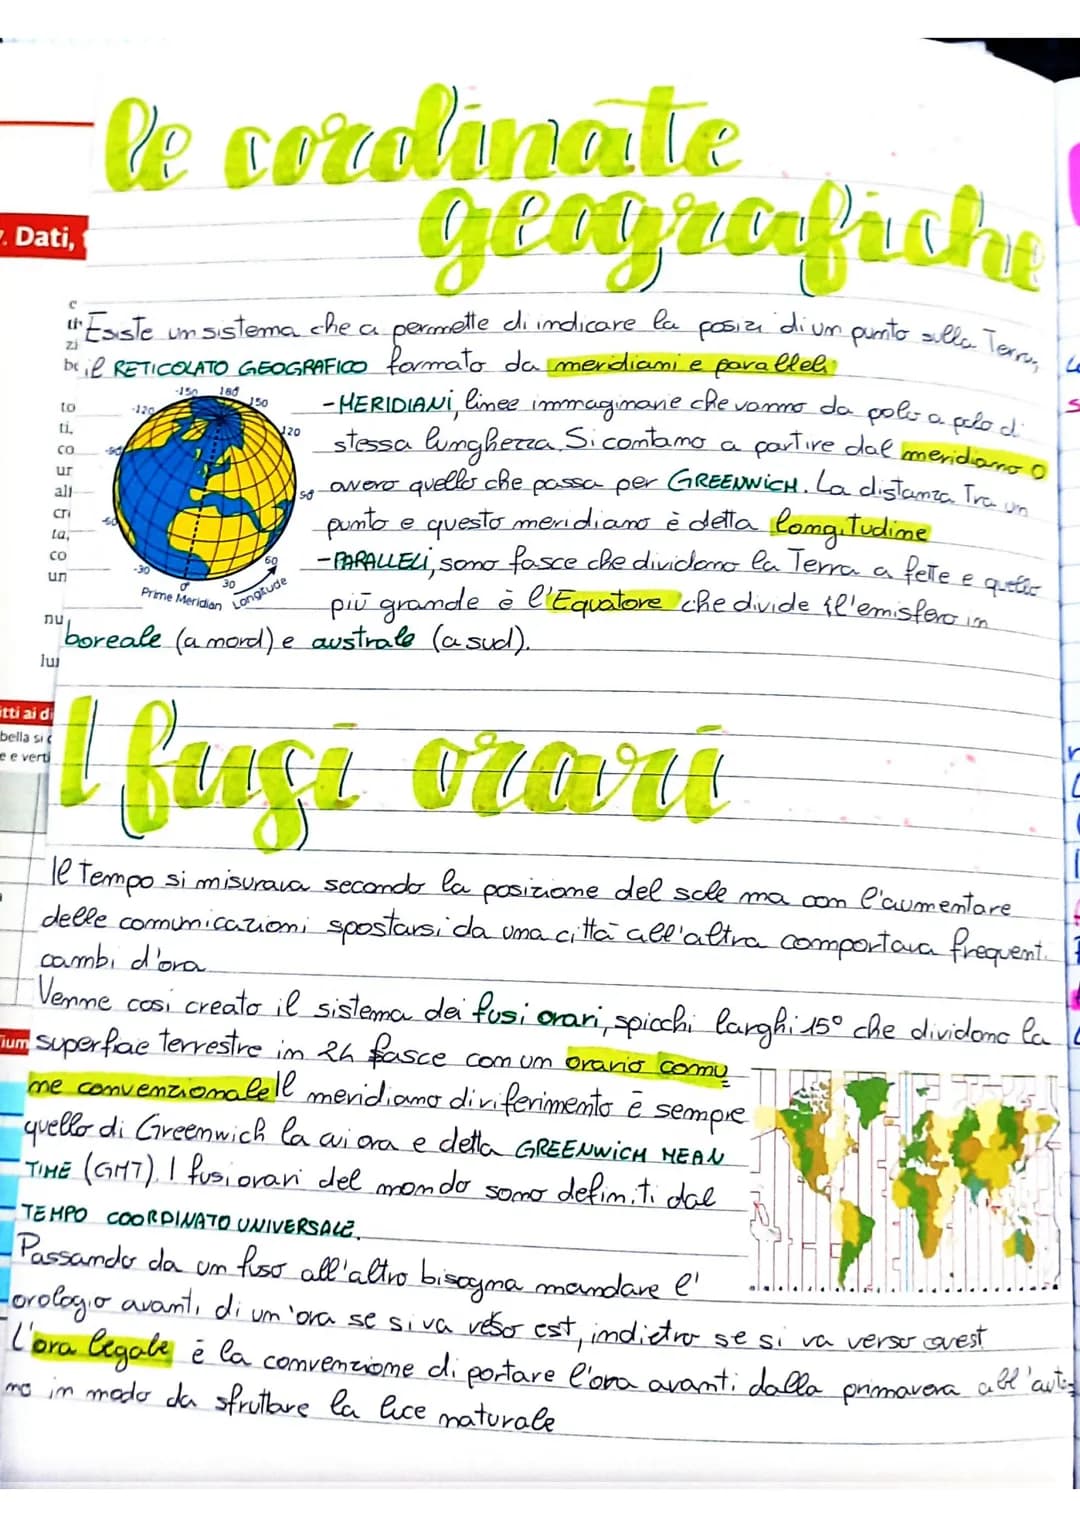 le cordinate
geografiche
7. Dati,
Esiste un sistema che ci permette di indicare la posizi di un punto sulla Terra,
il RETICOLATO GEOGRAFICO formato da meridiani e paralleli
-MERIDIANI, linee immaginarie che vanno da polo a polo di
stessa lunghezza. Si contano a partire dal meridiano 0
ovvero quello che passa per GREENWICH. La distanza Tra un
punto e questo meridiano è detta longitudine
-PARALLELI, sono fasce che dividono la Terra a fette e quello
più grande è l'Equatore che divide l'emisfero in
boreale (a nord) e australe (a sud).
-150 180 150
-120 120
-90 90
-60 60
-30 0° 30
Prime Meridian Longitude
c
th
zi
be
to
ti,
co
ur
all
cri
ta,
co
un
nu
lun
itti ai di
bella si c
e e verti
I fusi orari
Il Tempo si misurava secondo la posizione del sole ma con l'aumentare
delle comunicazioni spostarsi da una città all'altra comportava frequent.
cambi d'ora
Venne così creato il sistema dei fusi orari, spicchi larghi 15° che dividono la
ium
superficie terrestre in 24 fasce con un orario comu
ne convenzionale Il meridiano di riferimento è sempre
quello di Greenwich la cui ora e detta GREENWICH MEAN
TIME (GMT). I fusi orari del mondo sono definiti dal
TEMPO COORDINATO UNIVERSALE.
Passando da un fuso all'altro bisogna mandare l'
orologio avanti di un'ora se si va verso est, indietro se si va verso ovest
L'ora legale è la convenzione di portare l'ora avanti dalla primavera all'autun
no in modo da sfruttare la luce naturale